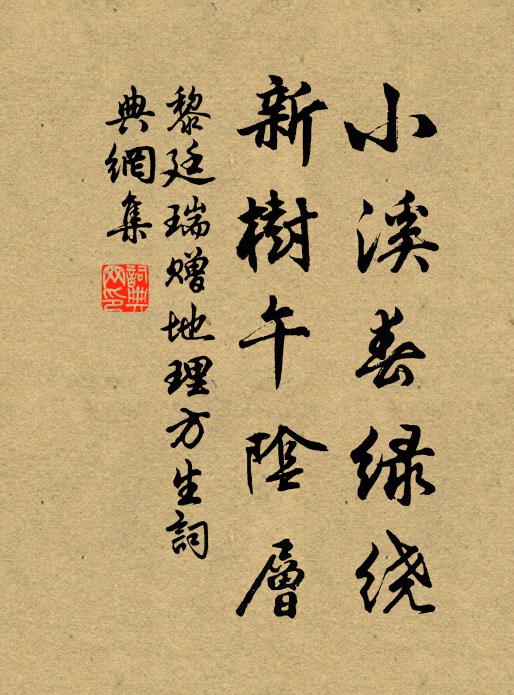 小溪春绿绕
新樹午陰層
黎廷瑞赠地理方生詞
典網集
詞典网印